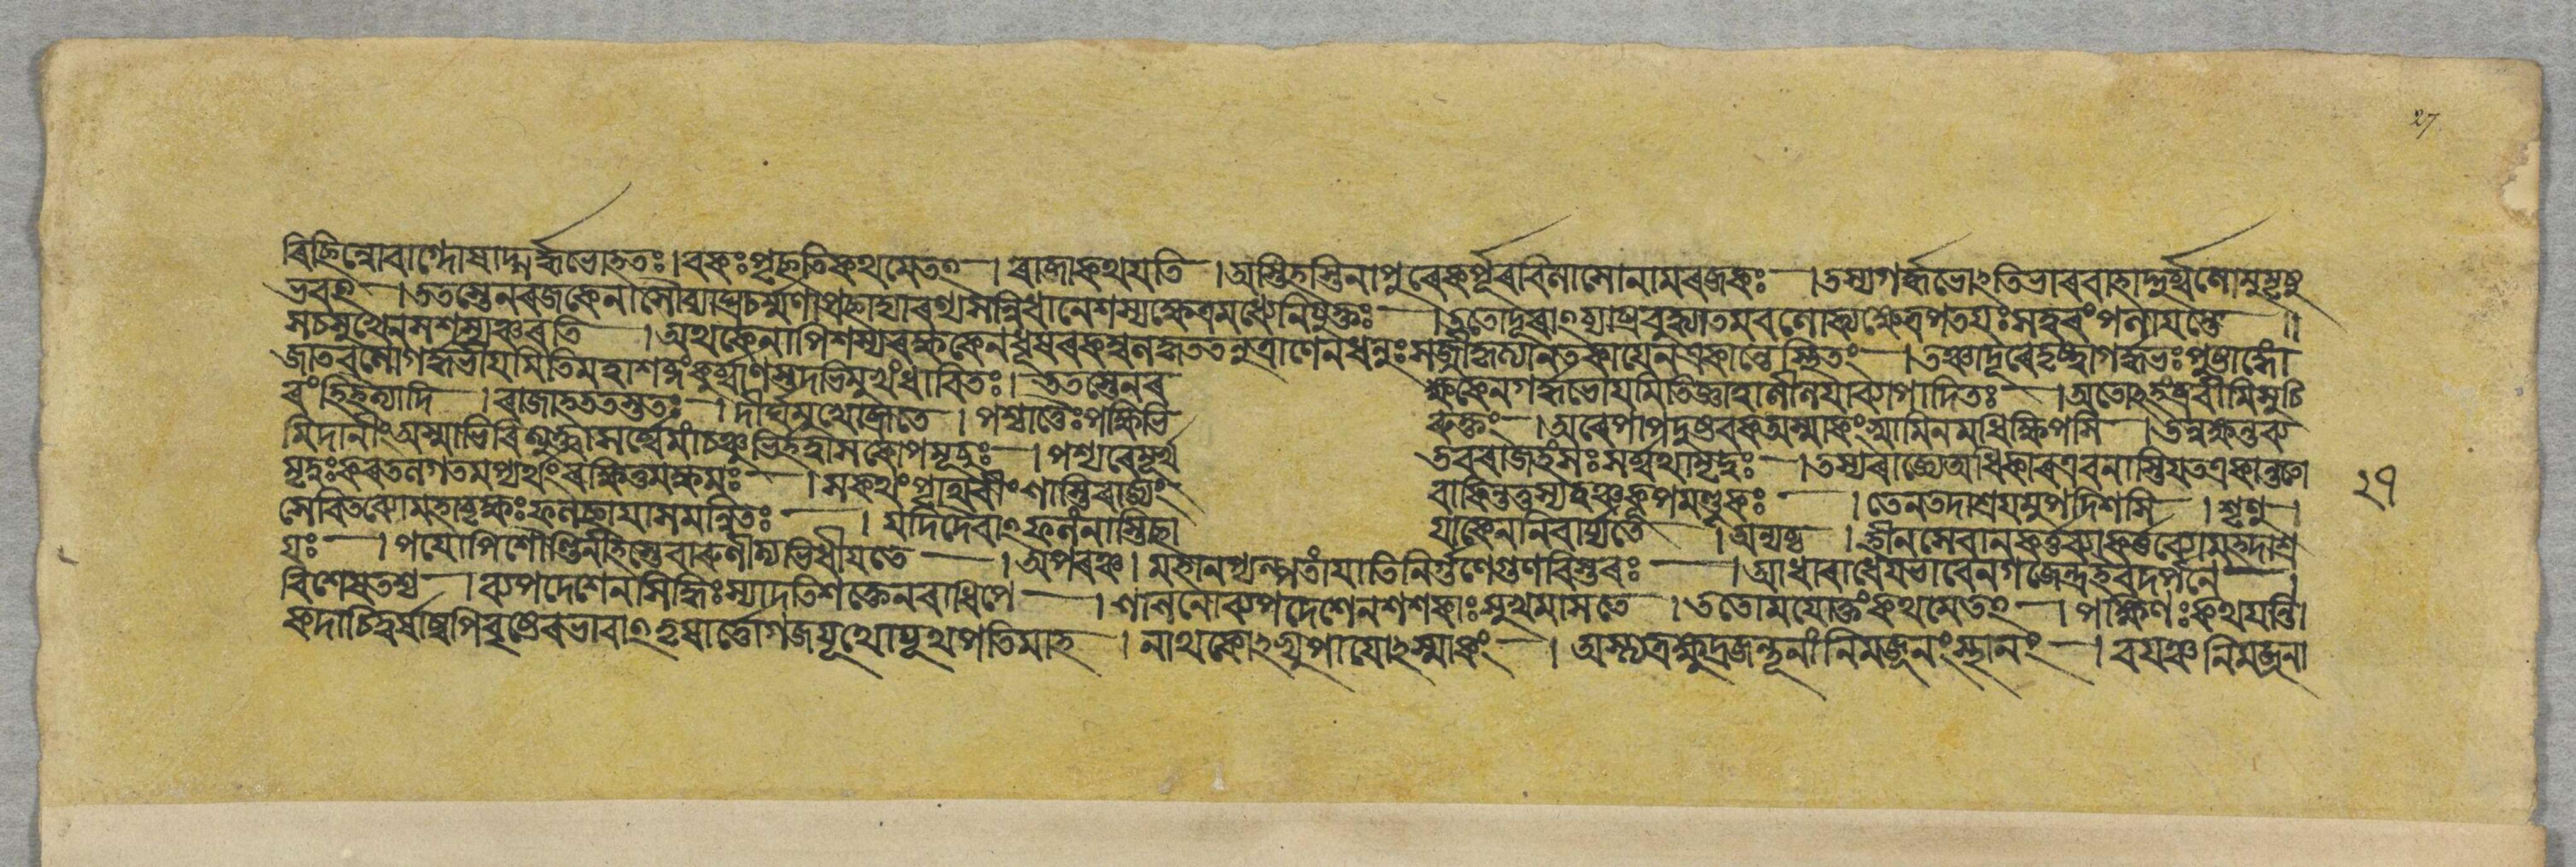 27
ৰিচ্ছিন্নোবাগ্দোষাদ্গর্দ্দভোহতঃ।বকঃপৃচ্ছতিকথমেতৎ । ৰাজাকথয়তি । অস্তিহস্তিনাপুৰেকর্পূৰবিলাসোনামৰজকঃ । তস্যগর্দ্দভোঽতিভাৰবাহাদ্দুর্ব্বলোমুমূর্ষু
ভবৎ । ততস্তেনৰজকেনাসৌব্যাঘ্রচর্ম্মণাপ্রচ্ছাদ্যাৰণ্যসন্নিধানেশস্যক্ষেত্রমধ্যেনিযুক্তঃ । ততোদূৰাৎব্যাঘ্রবুদ্ধ্যাতমবলোক্যক্ষেত্রপতয়ঃসত্বৰংপলায়ন্তে ॥
সচসুখেনসশস্যঞ্চৰতি । অথকেনাপিশস্যৰক্ষকেনধূষৰকম্বলকৃততনুত্রাণেনধনুঃসজ্জীকৃত্যানতকায়েনএকান্তেস্থিতং । তঞ্চদূৰেদৃষ্ট্বাগর্দ্দভঃপুষ্টাঙ্গো
জাতবলোগর্দ্দভীয়মিতিমত্বাশব্দংকুর্ব্বাণস্তদভিমুখংধাবিতঃ। ততস্তেনৰ ক্ষকেনগর্দ্দভোয়মিতিজ্ঞাত্বালীলয়াব্যাপাদিতঃ । অতোঽহংব্রবীমিসুচি
ৰংহিত্যাদি । ৰাজাহততস্ততঃ । দীর্ঘমুখোব্রূতে । পশ্চাত্তৈঃপক্ষিভি ৰুক্তং । অৰেপাপদুষ্টবকঅস্মাকংস্বামিনমধিক্ষিপসি । তন্নক্ষন্তব্য
মিদানীংঅস্মাভিৰিত্যুক্ত্বাসর্ব্বেমাংচঞ্চুভির্হত্বাসকোপমূচুঃ । পশ্যৰেমূর্খ তবৰাজহংসঃসর্ব্বথামৃদুঃ । তস্যৰাজ্যেঅধিকাৰএবনাস্তিযতএকান্ততো
মৃদুঃকৰতলগতমপ্যর্থংৰক্ষিতুমক্ষমঃ । সকথংপৃথিবীংশাস্তিৰাজ্যং বাকিন্তুতস্যত্বঞ্চকূপমণ্ডুকঃ । তেনতদাশ্রয়মুপদিশসি । শৃণু ।
সেবিতব্যোমহাবৃক্ষঃফলচ্ছায়াসমন্বিতঃ । যদিদৈবাৎফলংনাস্তিছা য়াকেননিবার্য্যতে । অন্যচ্চ । হীনসেবানকর্ত্তব্যাকর্ত্তব্যোমহদাশ্র
য়ঃ । পয়োপিশৌণ্ডিনীহস্তেবাৰুণীত্যভিধীয়তে । অপৰঞ্চ । মহানপ্যল্পতাংযাতিনির্গুণেগুণবিস্তৰঃ । আধাৰাধেয়ভাবেনগজেন্দ্রইবদর্পণে ।
বিশেষতশ্চ । ব্যপদেশেনসিদ্ধিঃস্যাদতিশক্তেনৰাধিপে । শশিনোব্যপদেশেনশশকাঃসুখমাসতে । ততোময়োক্তংকথমেতৎ । পক্ষিণঃকথয়ন্তি।
কদাচিদ্বর্ষাস্বপিবৃষ্টেৰভাবাৎতৃষার্ত্তোগজযূথোযূথপতিমাহ । নাথকোঽভ্যুপায়োঽস্মাকং । অস্ত্যত্রক্ষুদ্রজন্তূনাংনিমজ্জনংস্থানং । বয়ঞ্চনিমজ্জনা
২৭